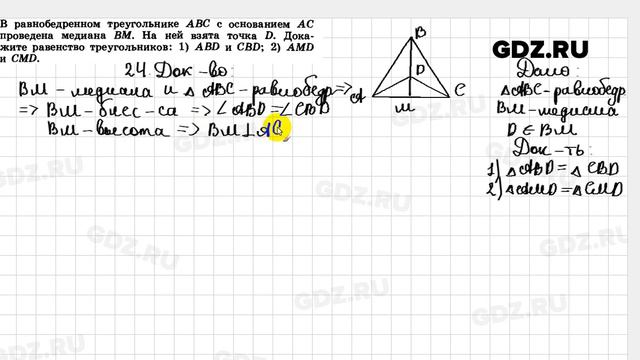 В равнобедренном треугольнике ABC с основанием AC
проведена медиана BM. На ней взята точка D. Дока-
жите равенство треугольников: 1) ABD и CBD; 2) AMD
и CMD.
GDZ.RU
24. Док-во:
BM-медиана и △ABC-равнобедр=>
=> BM-бисс-са => ∠ABD=∠CBD
BM-высота => BM⊥AC
B
D
A
M
C
Дано:
△ABC-равнобедр
BM-медиана
D∈BM
Док-ть:
1) △ABD=△CBD
2) △AMD=△CMD
GDZ.RU
GDZ.RU
GDZ.RU
GDZ.RU
GDZ.RU